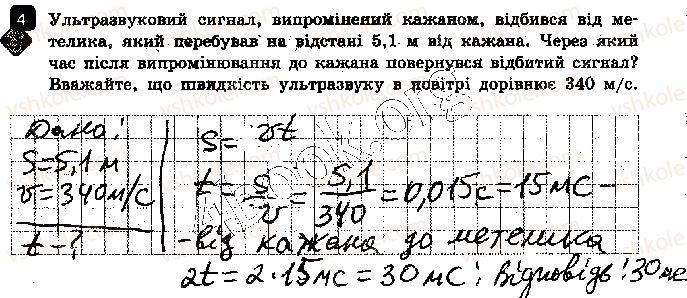 4 Ультразвуковий сигнал, випромінений кажаном, відбився від ме-
телика, який перебував на відстані 5,1 м від кажана. Через який
час після випромінювання до кажана повернувся відбитий сигнал?
Вважайте, що швидкість ультразвуку в повітрі дорівнює 340 м/с.
Дано: S = vt
S=5,1 м
v=340 м/с t = S/v = 5,1/340 = 0,015 с = 15 мс –
t – ? - від кажана до метелика
2t = 2·15 мс = 30 мс; Відповідь: 30 мс